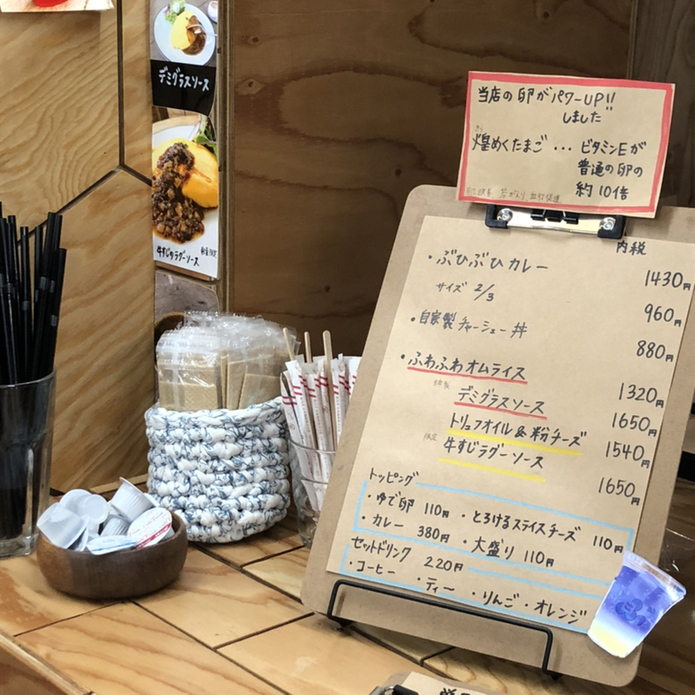 デミグラスソース
牛すじラグーソース
当店の卵がパワーUP!!
しました
煌めくたまご... ビタミンEが
普通の卵の
約10倍
内税
・ぶひぶひカレー 1430円
サイズ 2/3 960円
・自家製チャーシュー丼 880円
・ふわふわオムライス
デミグラスソース 1320円
トリュフオイル&粉チーズ 1650円
牛すじラグーソース 1540円
1650円
トッピング
・ゆで卵 110円 ・とろけるスライスチーズ 110円
・カレー 380円 ・大盛り 110円
セットドリンク 220円
・コーヒー ・ティー ・りんご ・オレンジ